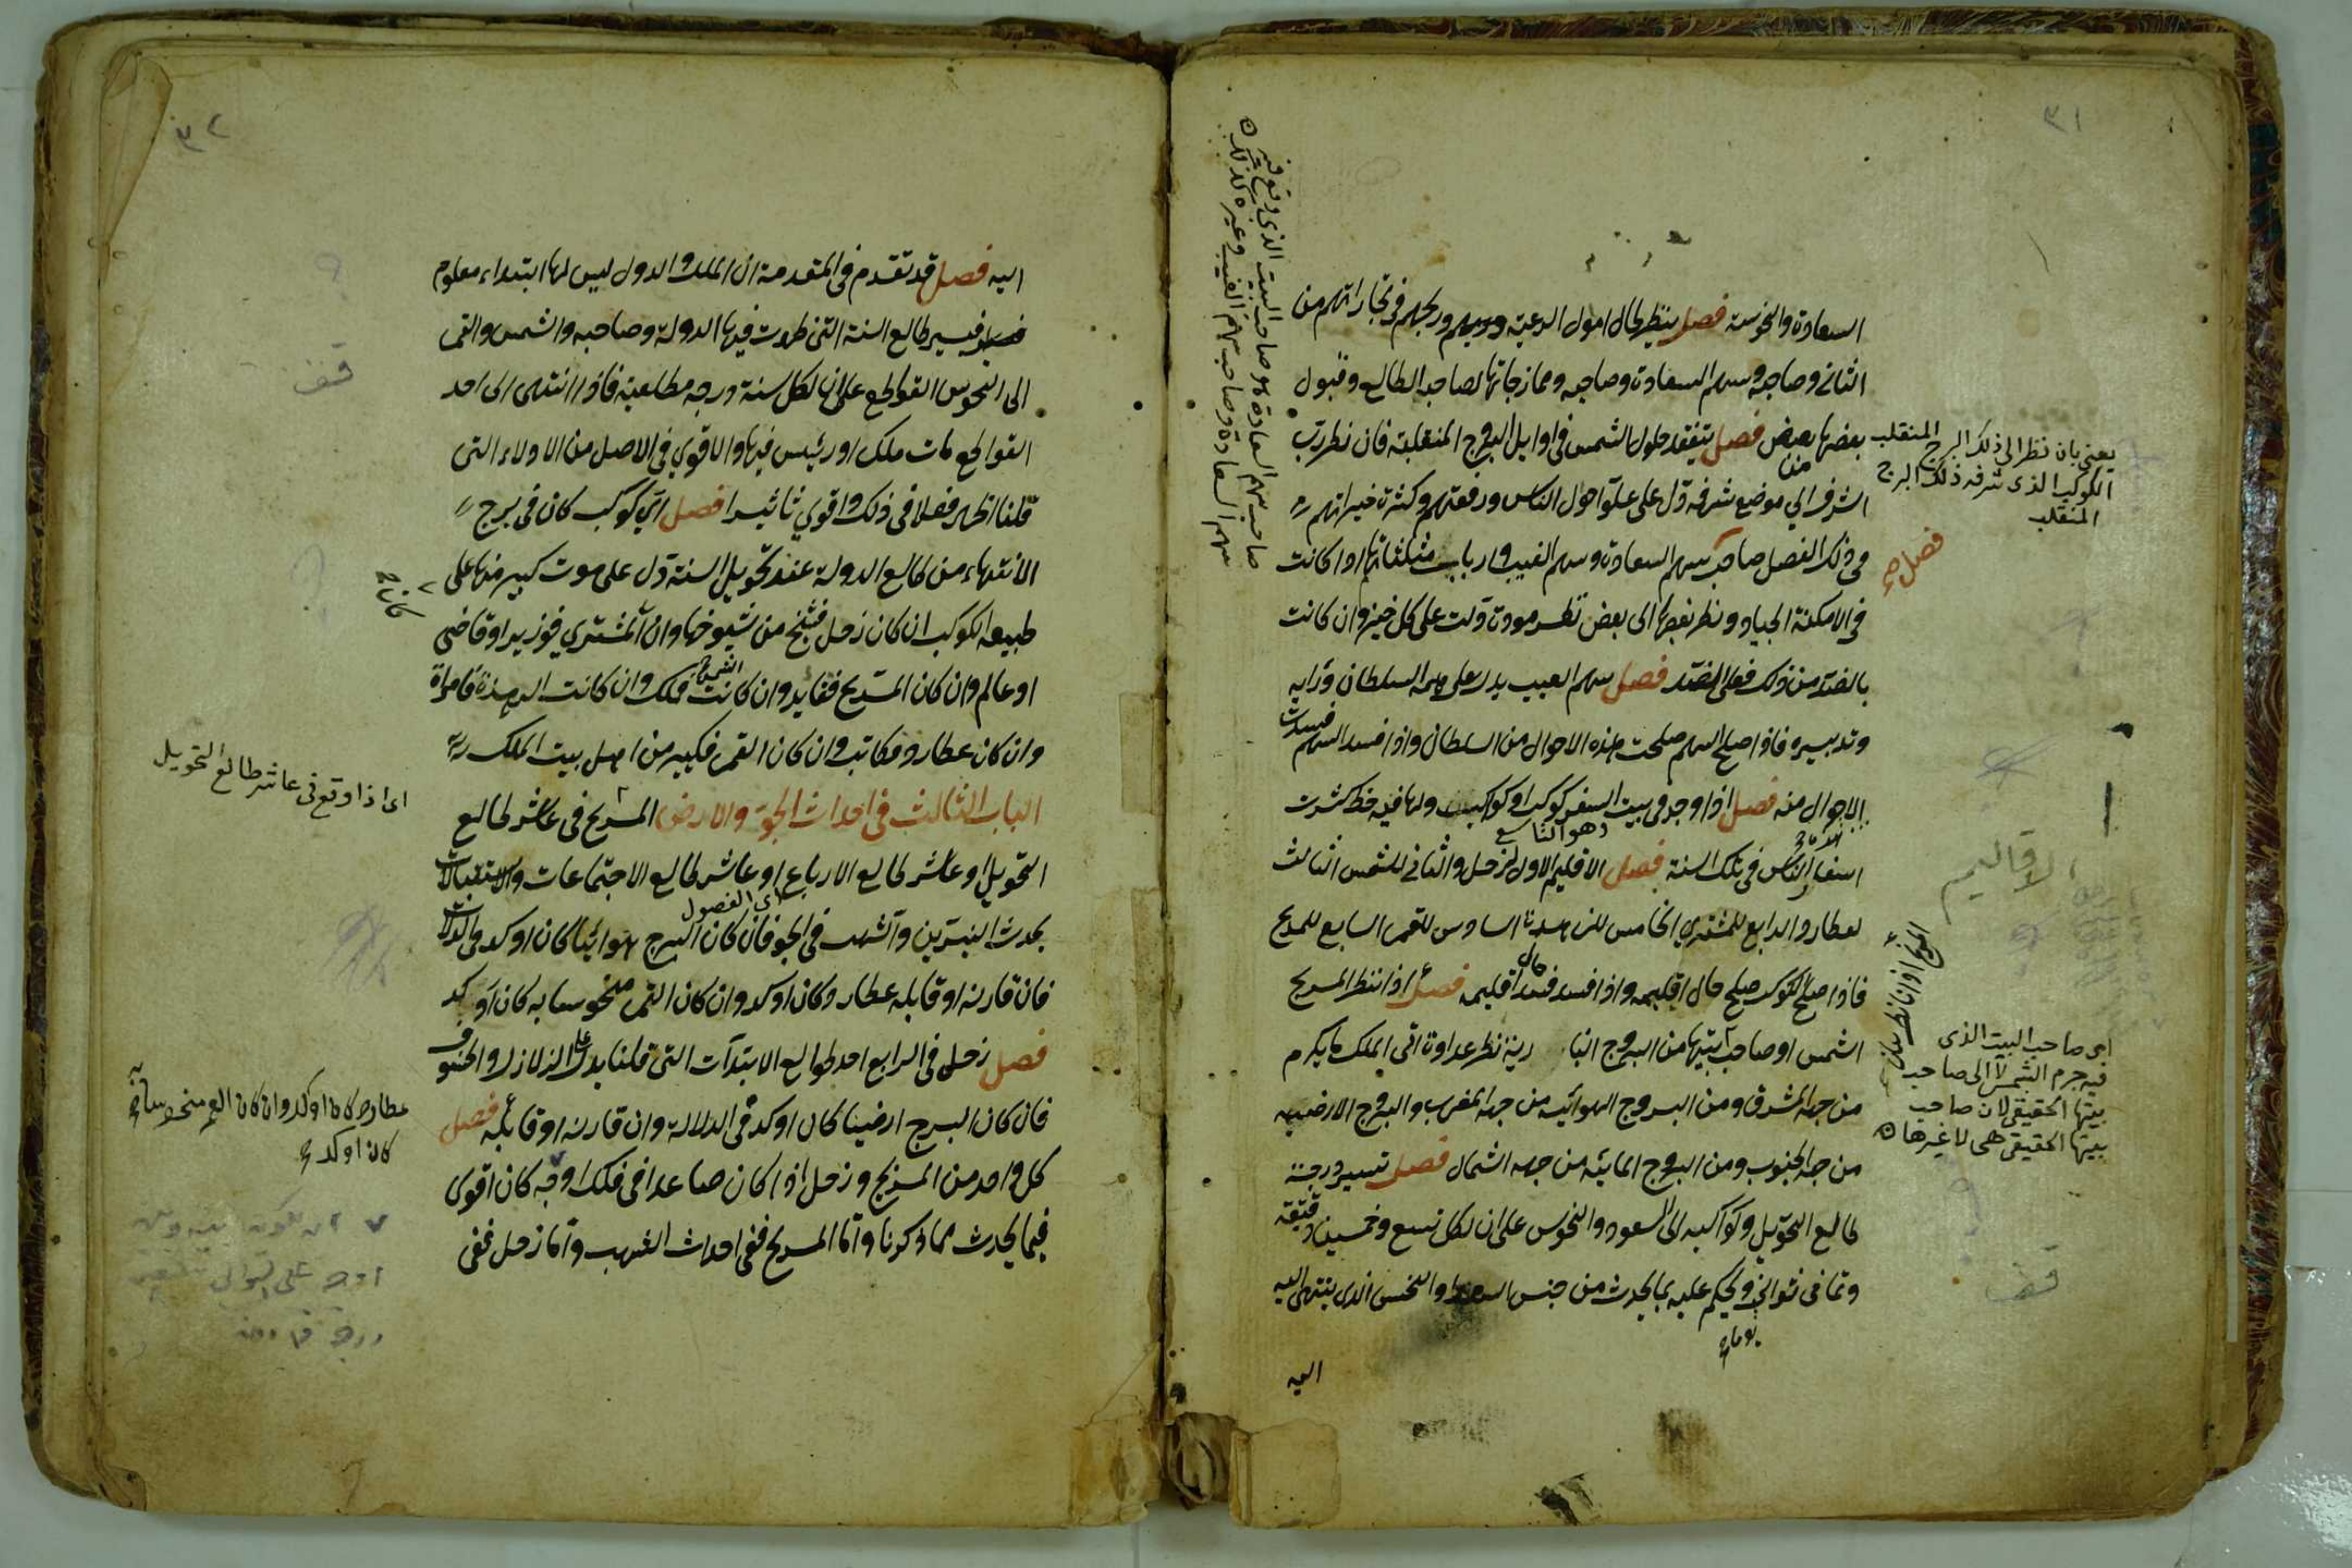 ٣١
السعادة والنحوسة فصل ينظر لحال اموال الرعية وربحهم فى تجاراتهم من
الثانى وصاحبه وسهم السعادة وصاحبه وممازجاتها لصاحب الطالع وقبول
بعضها بعض فصل يتفقد حلول الشمس فى اوايل البروج المنقلبة فان نظر رب
الشرف الي موضع شرفه دل على علو احوال الناس ورفعتهم وكثرة خيراتهم
فى ذلك الفصل صاحب سهم السعادة وسهم الغيب وارباب مثلثاتها اذا كانت
فى الامكنة الجياد ونظر بعضها الى بعض نظر مودة دلت على كل خير وان كانت
بالضد من ذلك فعلى الضد فصل سهم الغيب يدل على همه السلطان ورايه
وتدبيره فاذا صلح السهم صلحت هذه الاحوال من السلطان واذا فسد السهم فسدت
الاحوال منه فصل اذا وجد فى بيت السفر كوكب او كواكب ولها فيه حظ كثرت
وهو التاسع
اسفار الناس فى تلك السنة فصل الاقليم الاول لزحل والثانى للشمس الثالث
لعطارد الرابع للمشتري الخامس للزهرة السادس للقمر السابع للمريخ
فاذا صلح الكوكب صلح حال اقليمه واذا فسد فسد حال اقليمه فصل اذا نظر المريخ
الشمس او صاحب بيتها من البروج النارية نظر عداوة اتى الملك ما يكره
من جهة المشرق ومن البروج الهوائيه من جهة المغرب والبروج الارضيه
من جهة الجنوب ومن البروج المائيه من جهه الشمال فصل تسير درجة
طالع التحويل وكواكبه الى السعود والنحوس على ان لكل تسع وخمسين دقيقة
وثمانى ثوانى ويحكم عليه بما يحدث من جنس السعد او النحس الذى ينتهى اليه
يوما
اليه
يعنى بان نظر الى ذلك البرج المنقلب
الكوكب الذى شرفه ذلك البرج
المنقلب
فصل
الاقاليم
اى صاحب البيت الذى
فيه جرم الشمس لا الى صاحب
بيتها الحقيقى لان صاحب
بيتها الحقيقى هى لا غيرها
قف
صاحب سهم السعادة هو صاحب البيت الذى وقع فيه
سهم السعادة وصاحب سهم الغيب وغيره كذلك
٣٢
اليه فصل قد تقدم فى المقدمة ان الملك والدول ليس لها ابتداء معلوم
فيسير طالع السنة التى ظهرت فيها الدولة وصاحبه والشمس والقمر
الى النحوس القواطع على ان لكل سنة درجه مطلعية فاذا انتهى الى احد
القواطع مات ملك او رئيس فيها والاقوي فى الاصل من الاولاء التى
قلنا اظهر فعلا فى ذلك واقوي تاثيرا فصل اي كوكب كان فى برج
الانتهاء من طالع الدولة عند تحويل السنة دل على موت كبير منها على
طبيعه الكوكب ان كان زحل فشيخ من شيوخها وان المشتري فوزير او قاضى
او عالم وان كان المريخ فقايد وان كانت الشمس فملك وان كانت الزهرة فامراة
وان كان عطارد فكاتب وان كان القمر فكبير من اهل بيت الملك
الباب الثالث فى احداث الجو والارض المريخ فى عاشر طالع
التحويل او عاشر طالع الارباع او عاشر طالع الاجتماعات والاستقبالات
اى الفصول
يحدث النيرين والشهب فى الجو فان كان البرج هوائيا كان اوكد فى الدلالة
فان قارنه او قابله عطارد كان اوكد وان كان القمر منحوسا به كان اوكد
فصل زحل فى الرابع احد طوالع الابتدآت التى قلنا يدل على الزلازل والخسوف
فان كان البرج ارضيا كان اوكد فى الدلالة وان قارنه او قابله فصل
كل واحد من المريخ وزحل اذا كان صاعدا فى فلك اوجه كان اقوى
فيما يحدث مما ذكرنا واما المريخ ففى احداث الشهب واما زحل ففى
قف
اى اذا وقع فى عاشر طالع التحويل
عطارد كان اوكد وان كان القمر منحوسا به
كان اوكد